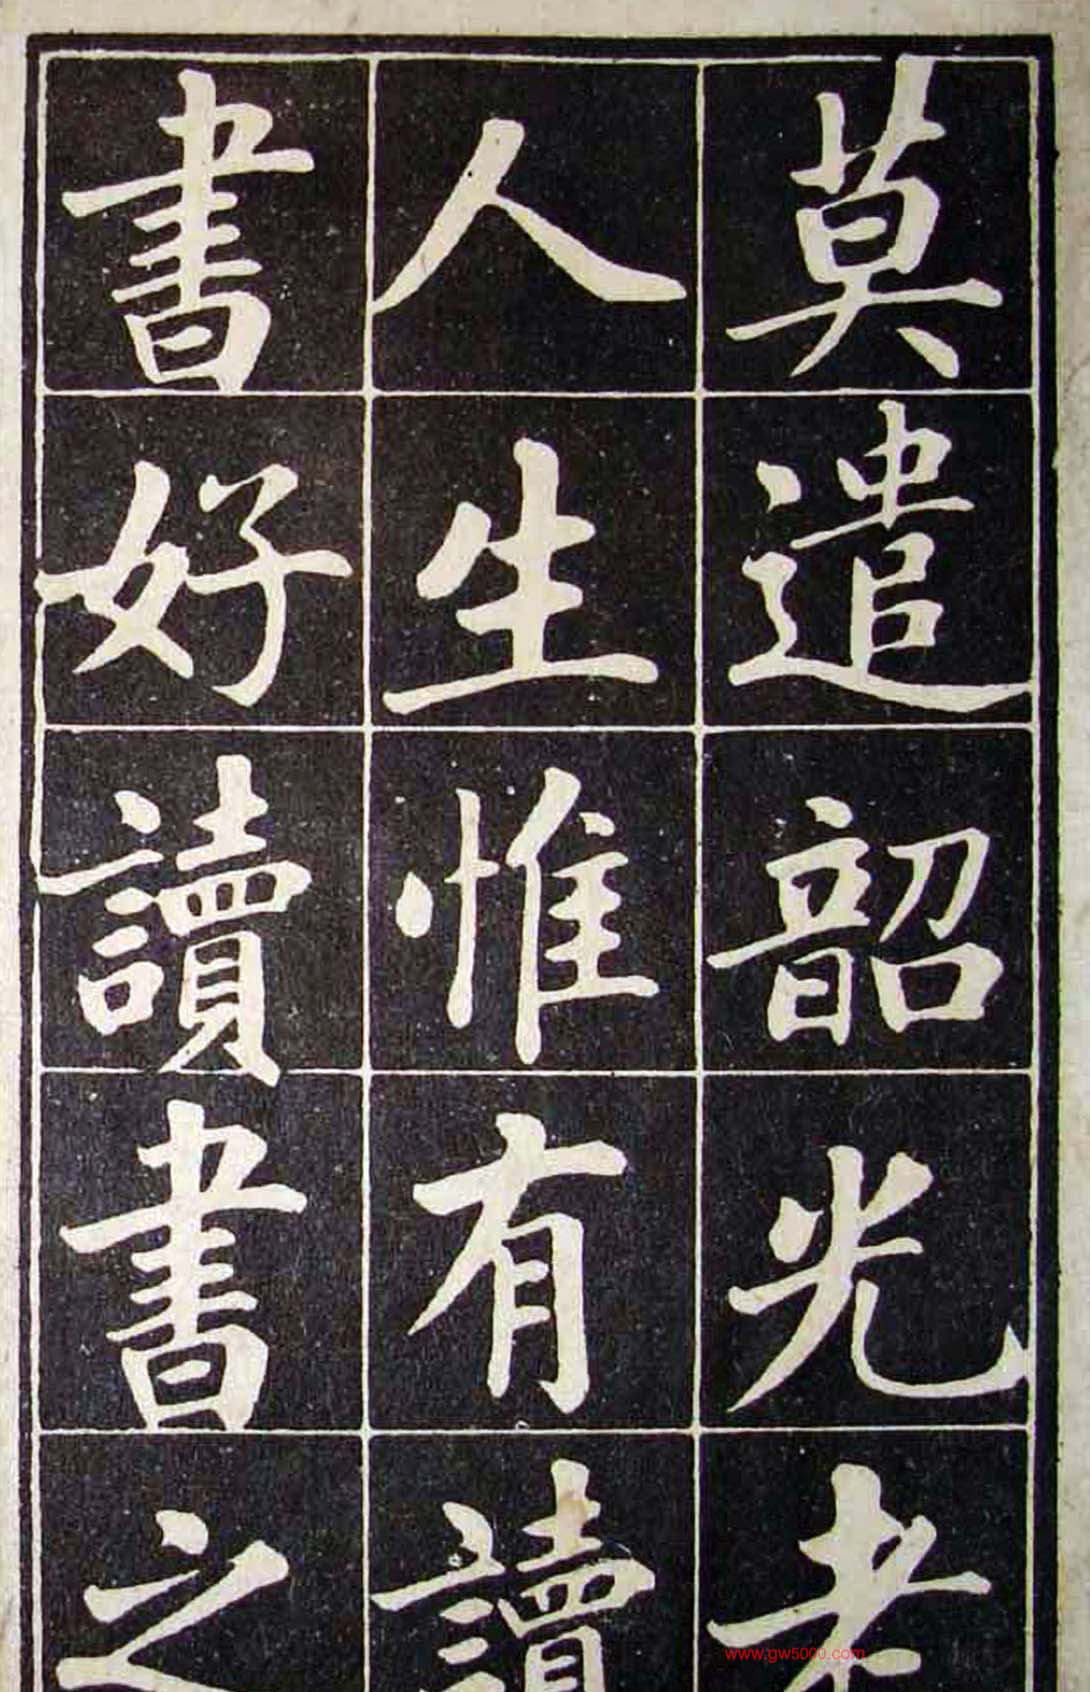 莫遣韶光老
人生惟有讀
書好讀書之
www.gw5000.com